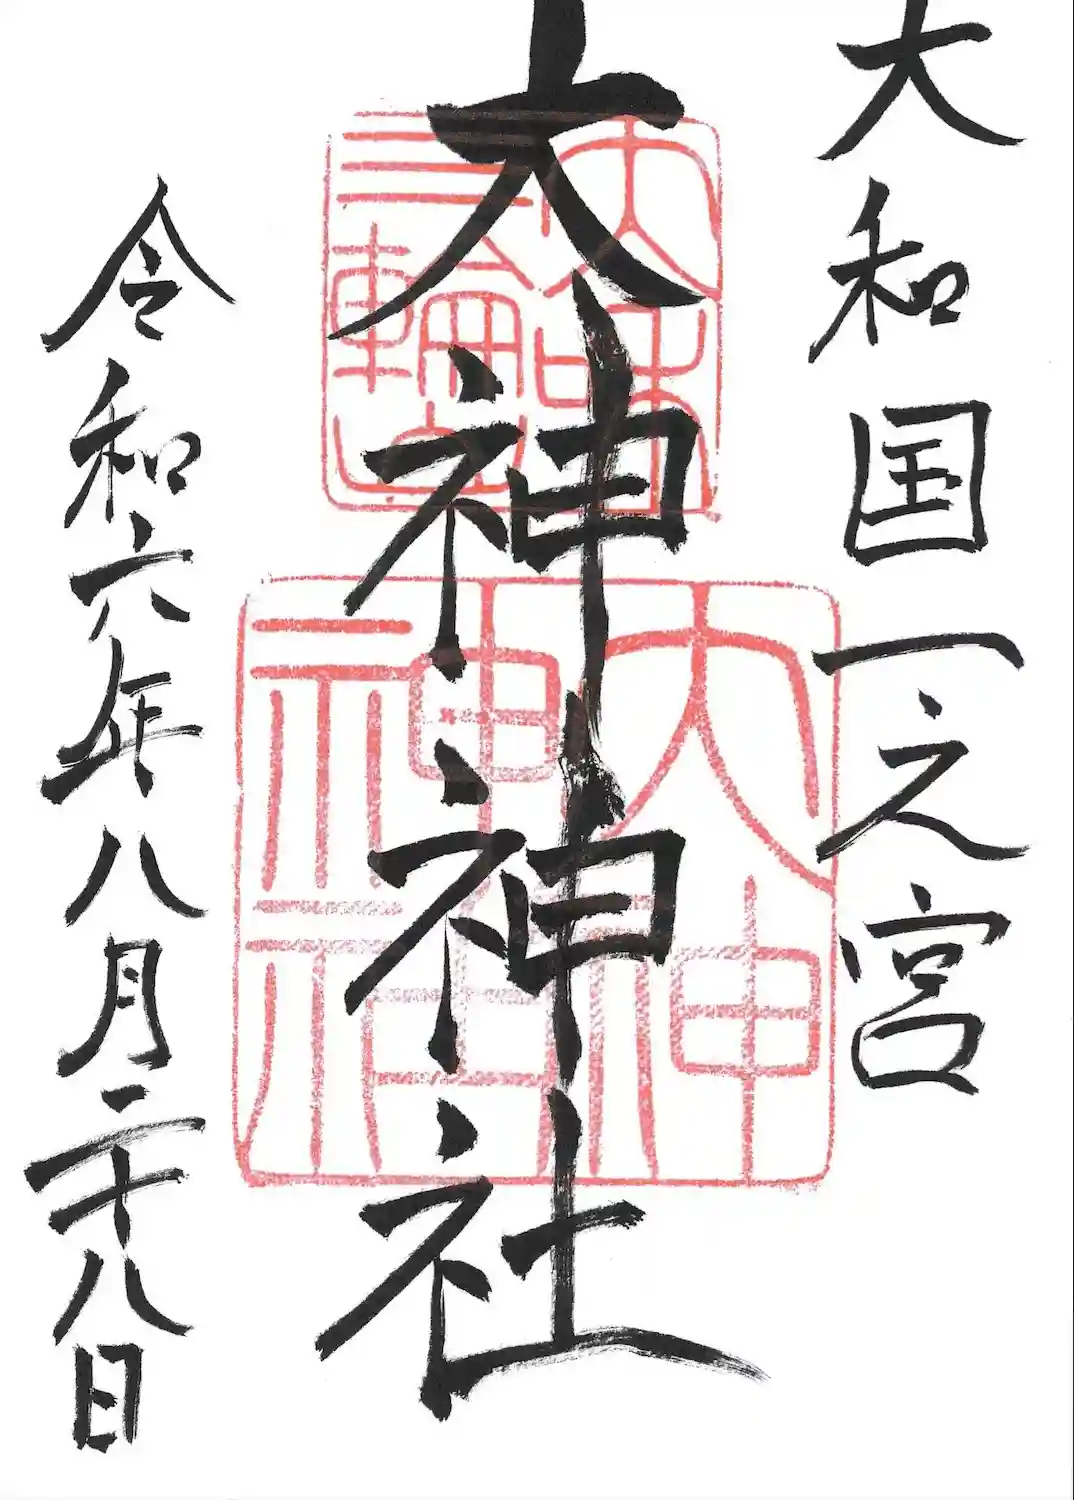 大和国一之宮
大神神社
令和六年八月二十八日
大和
三輪山
大神
神社